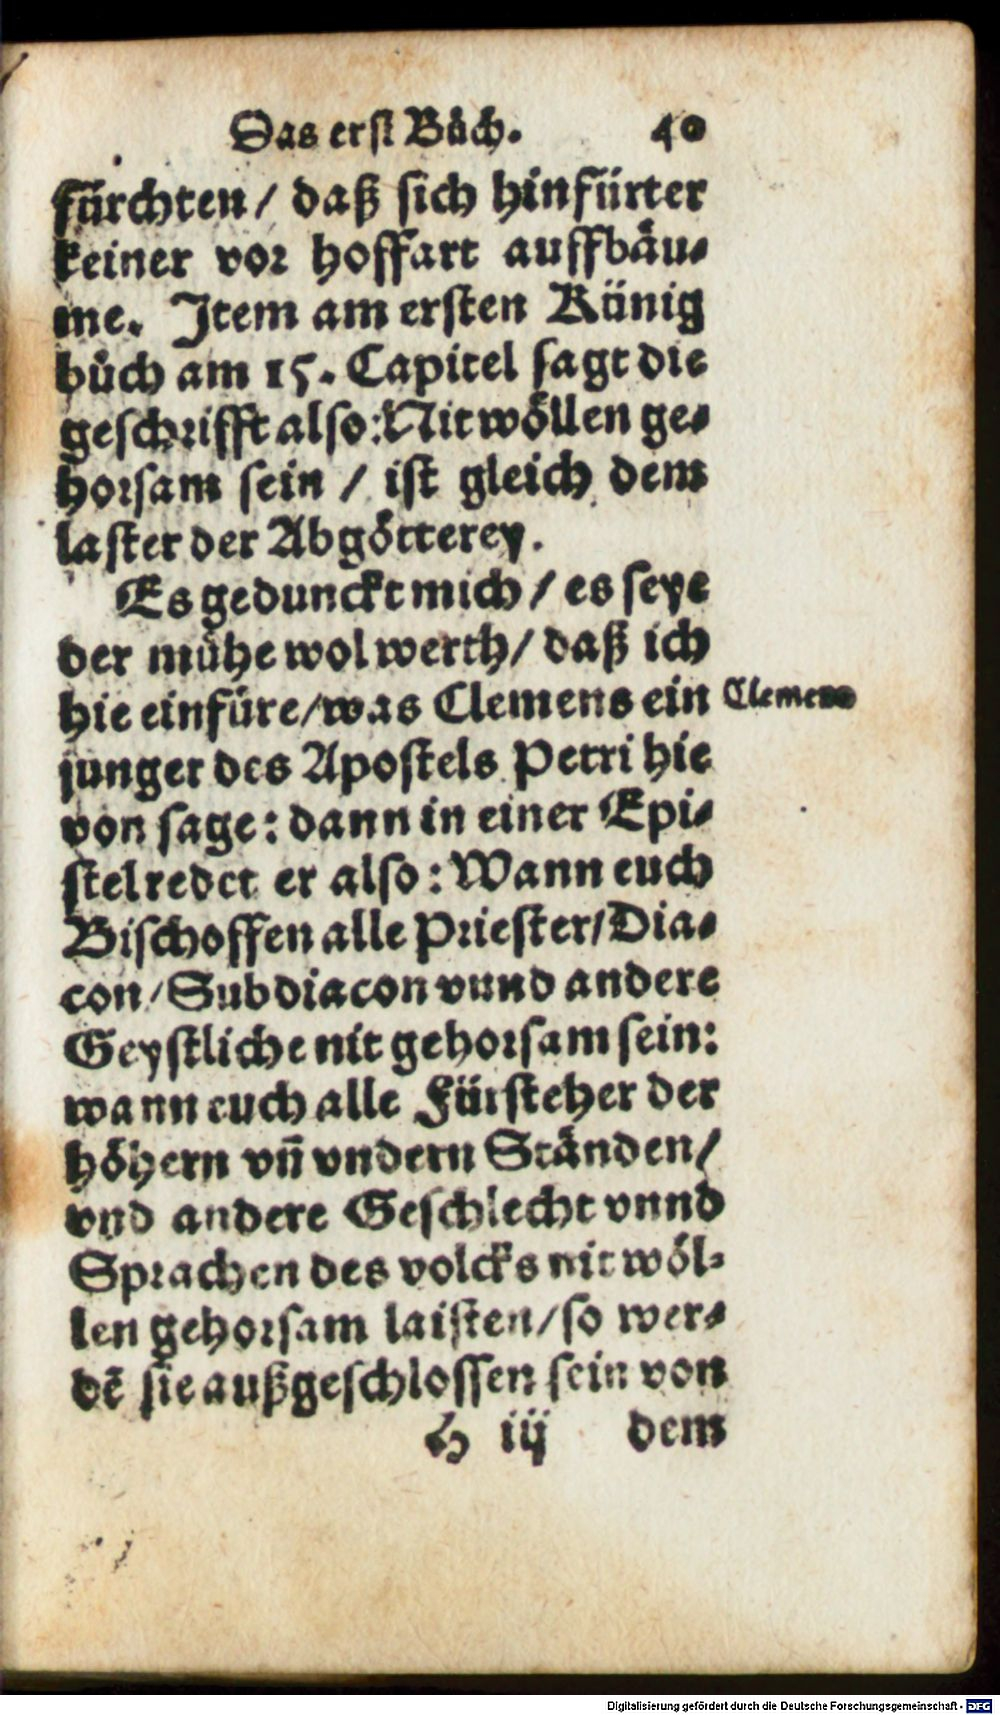 Das erst Bůch. 40
fürchten / daß sich hinfürter
keiner vor hoffart auffbäu-
me. Item am ersten Künig
bůch am 15. Capitel sagt die
geschrifft also: Nit wöllen ge-
horsam sein / ist gleich dem
laster der Abgötterey.
Es gedunckt mich / es seye
der mühe wol werth / daß ich
hie einfüre / was Clemens ein
Clemens
junger des Apostels Petri hie
von sage: dann in einer Epi-
stel redet er also: Wann euch
Bischoffen alle Priester / Dia-
con / Subdiacon vnnd andere
Geystliche nit gehorsam sein:
wann euch alle Fürsteher der
höhern vñ vndern Ständen /
vnd andere Geschlecht vnnd
Sprachen des volcks nit wöl-
len gehorsam laisten / so wer-
dẽ sie außgeschlossen sein von
h iij dem
Digitalisierung gefördert durch die Deutsche Forschungsgemeinschaft - DFG